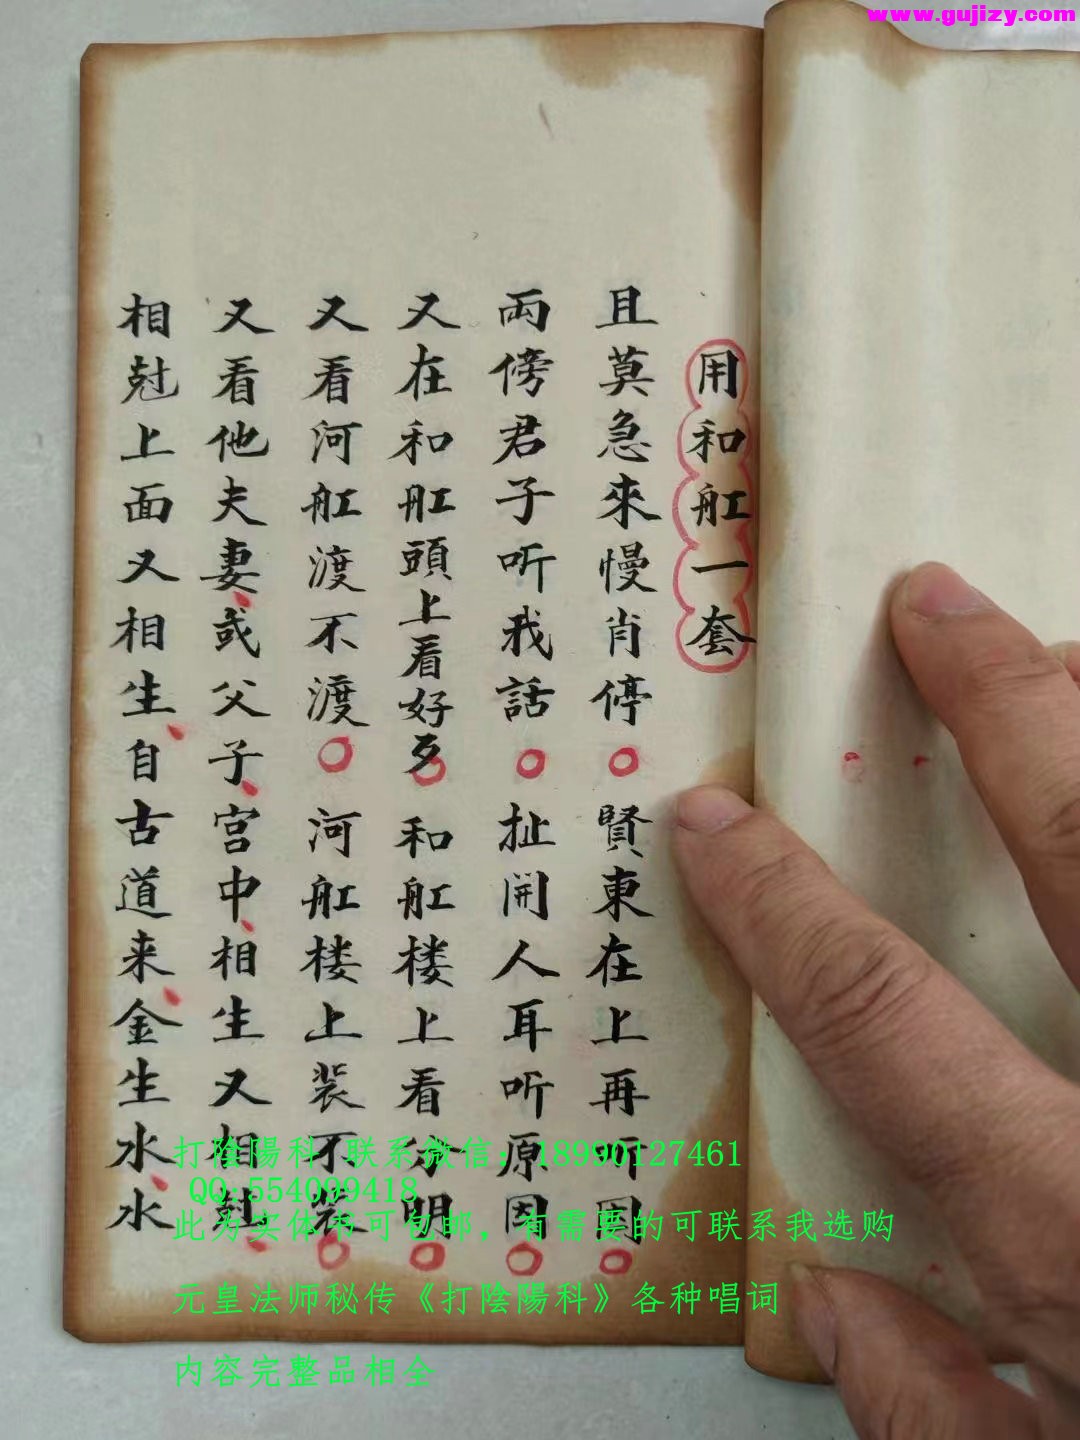 www.gujizy.com
用和舡一套
且莫急來慢肖停○賢東在上再听因○
兩傍君子听我話○扯開人耳听原因○
又在和舡頭上看好歹○和舡楼上看分明○
又看河舡渡不渡○河舡楼上装不装○
又看他夫妻、或父子、宫中、相生又相尅、
相尅上面又相生、自古道来、金生水、水
打陰陽科 联系微信：18990127461
QQ:554099418
此为实体书可包邮，有需要的可联系我选购
元皇法师秘传《打陰陽科》各种唱词
内容完整品相全